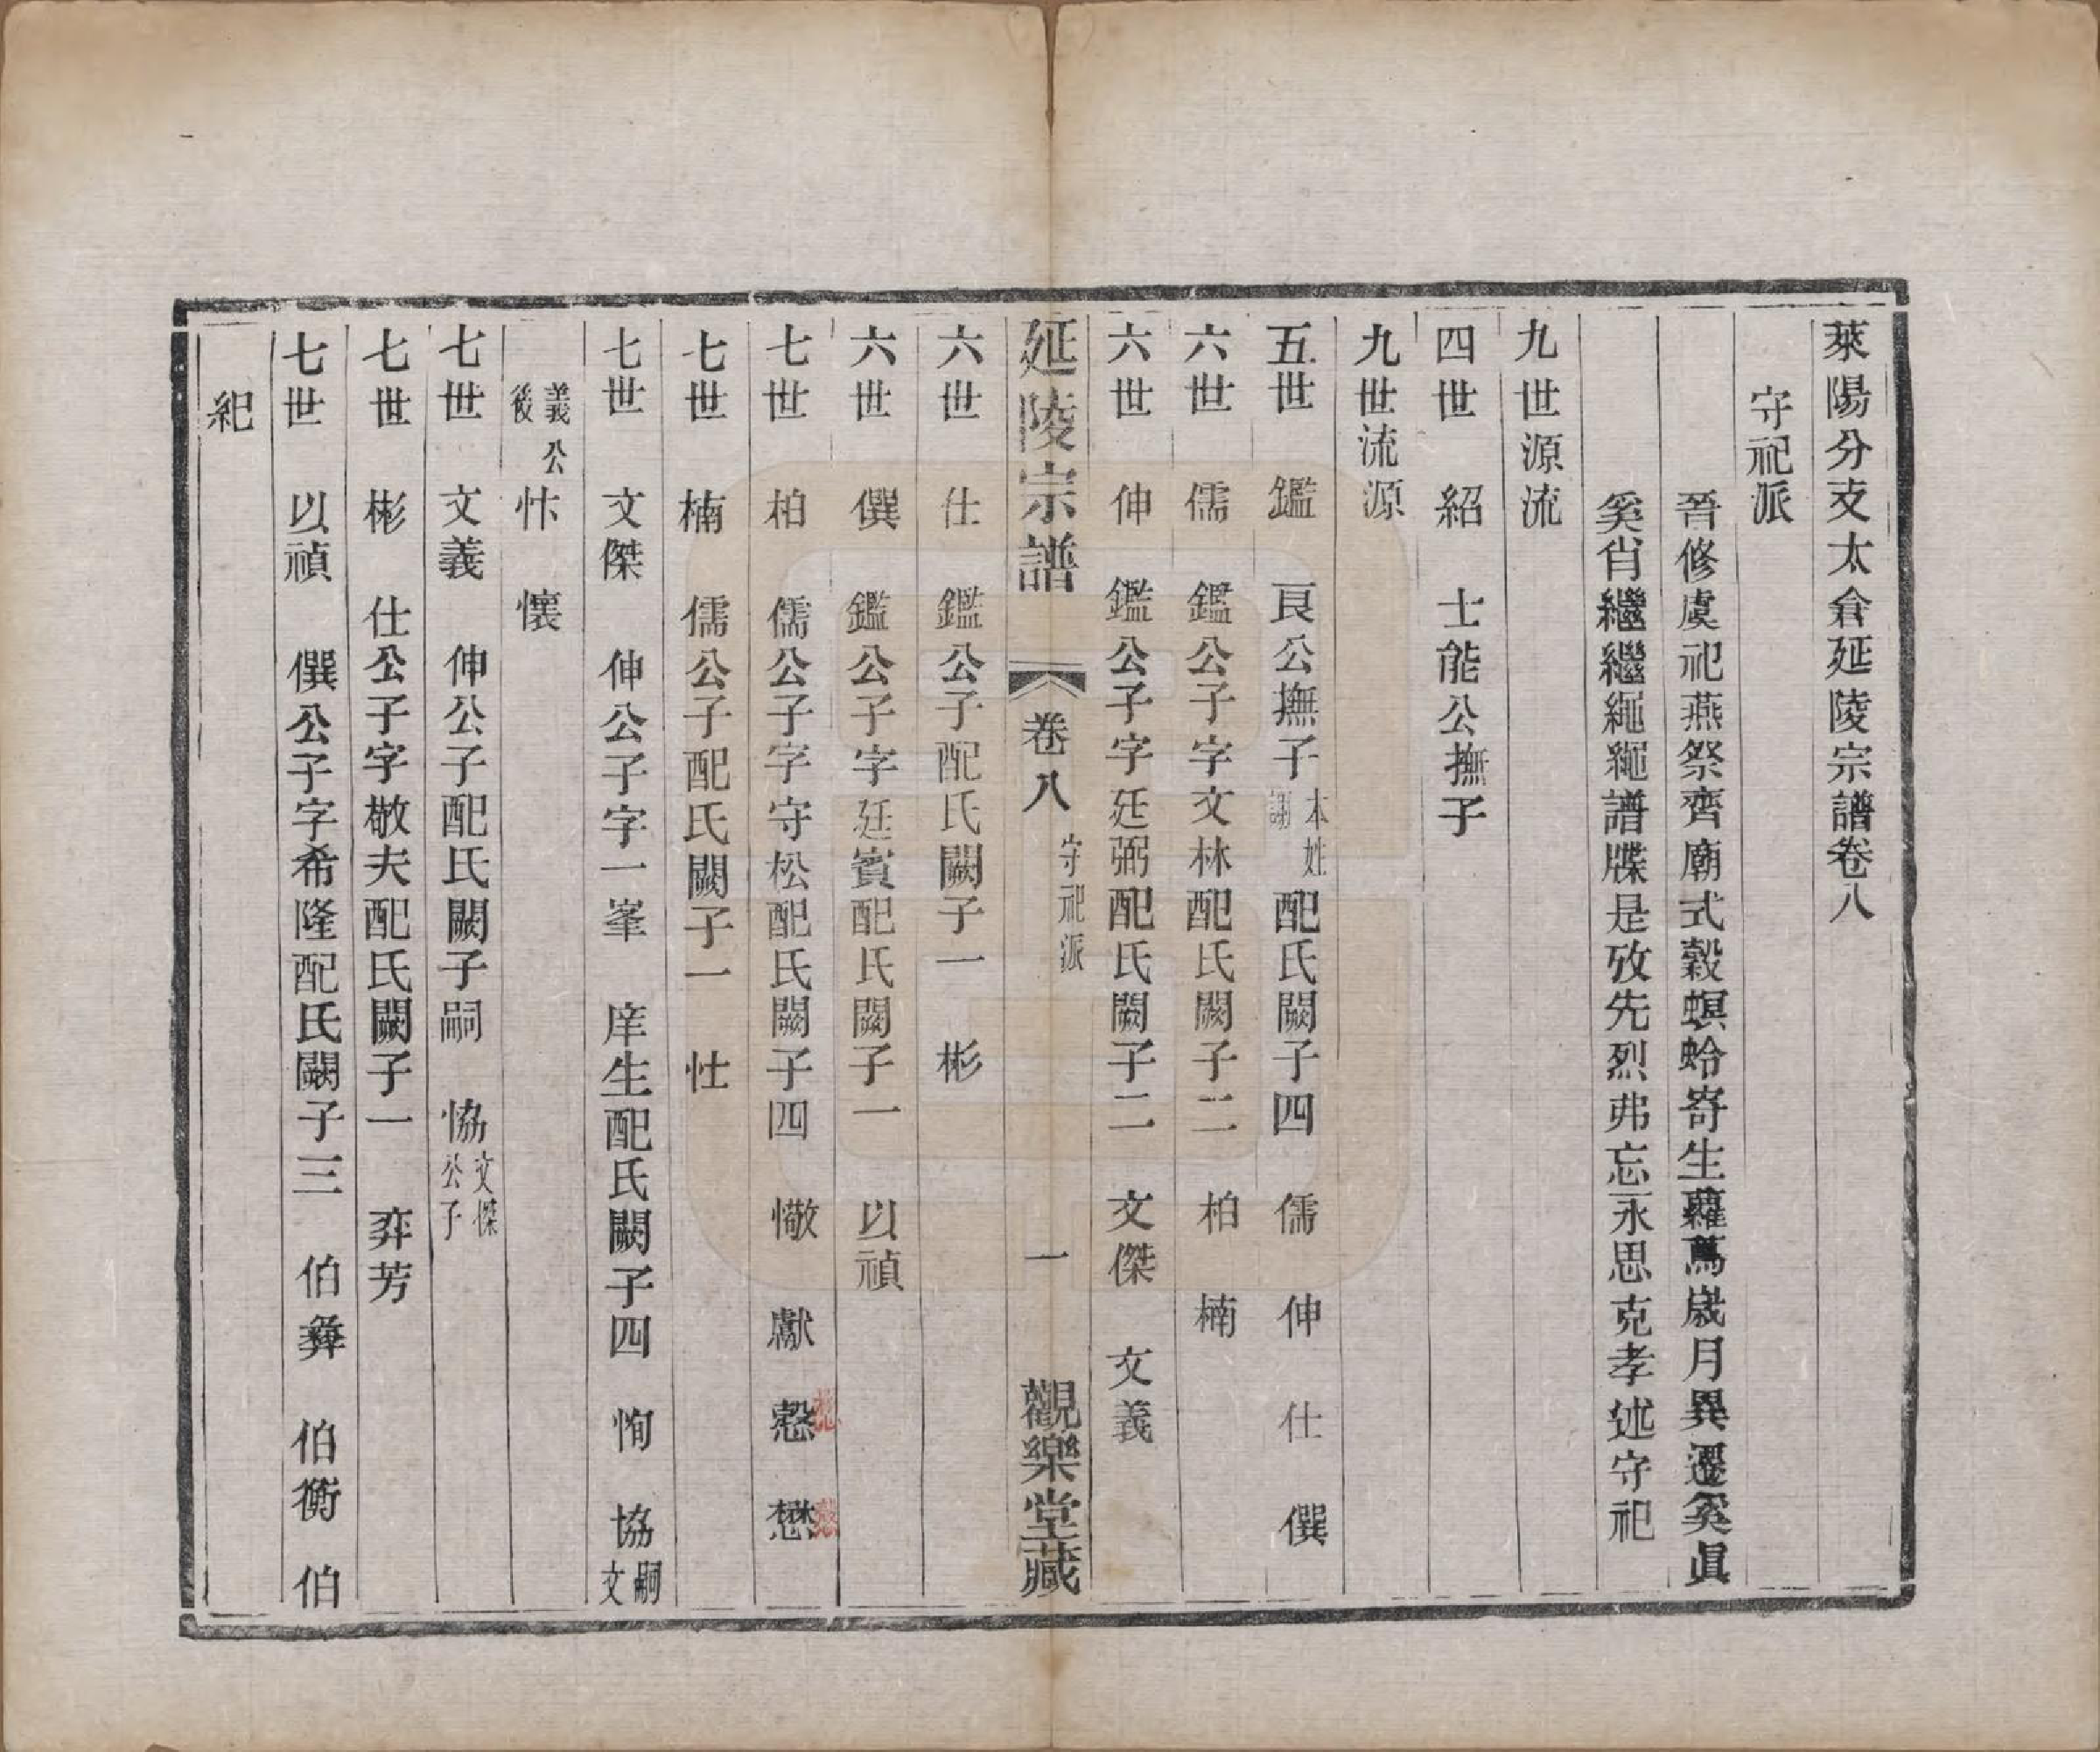 萊陽分支太倉延陵宗譜卷八
守祀派
晉修虞祀燕祭齊廟式穀螟蛉寄生蘿蔦歲月異遷奚眞
奚肖繼繼繩繩譜牒是攷先烈弗忘永思克孝述守祀
九世源流
四世 紹 士能公撫子
九世流源
五世 鑑 良公撫子本姓謝配氏闕子四 儒 伸 仕 僎
六世 儒 鑑公子字文林配氏闕子二 柏 楠
六世 伸 鑑公子字廷弼配氏闕子二 文傑 文義
延陵宗譜 卷八 守祀派 一 觀樂堂藏
六世 仕 鑑公子配氏闕子一 彬
六世 僎 鑑公子字廷賓配氏闕子一 以禎
七世 柏 儒公子字守松配氏闕子四 憿 獻 懸 懋
七世 楠 儒公子配氏闕子一 性
七世 文傑 伸公子字一峯 庠生配氏闕子四 恂 協嗣文
義公後 忭 懷
七世 文義 伸公子配氏闕子嗣 協文傑公子
七世 彬 仕公子字敬夫配氏闕子一 弈芳
七世 以禎 僎公子字希隆配氏闕子三 伯彝 伯衡 伯
紀